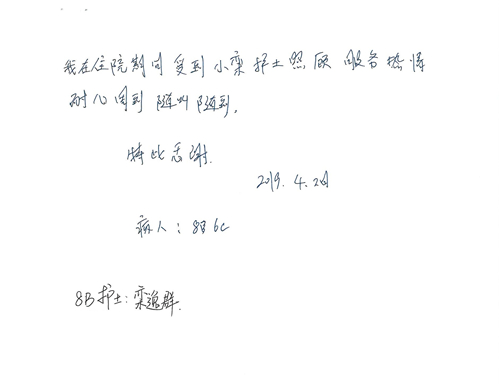 我在住院期间受到小栾护士照顾 服务热情
耐心周到 随叫随到.
特此感谢.
2019. 4.
病人: 8B 6C
8B护士: 栾逸群.